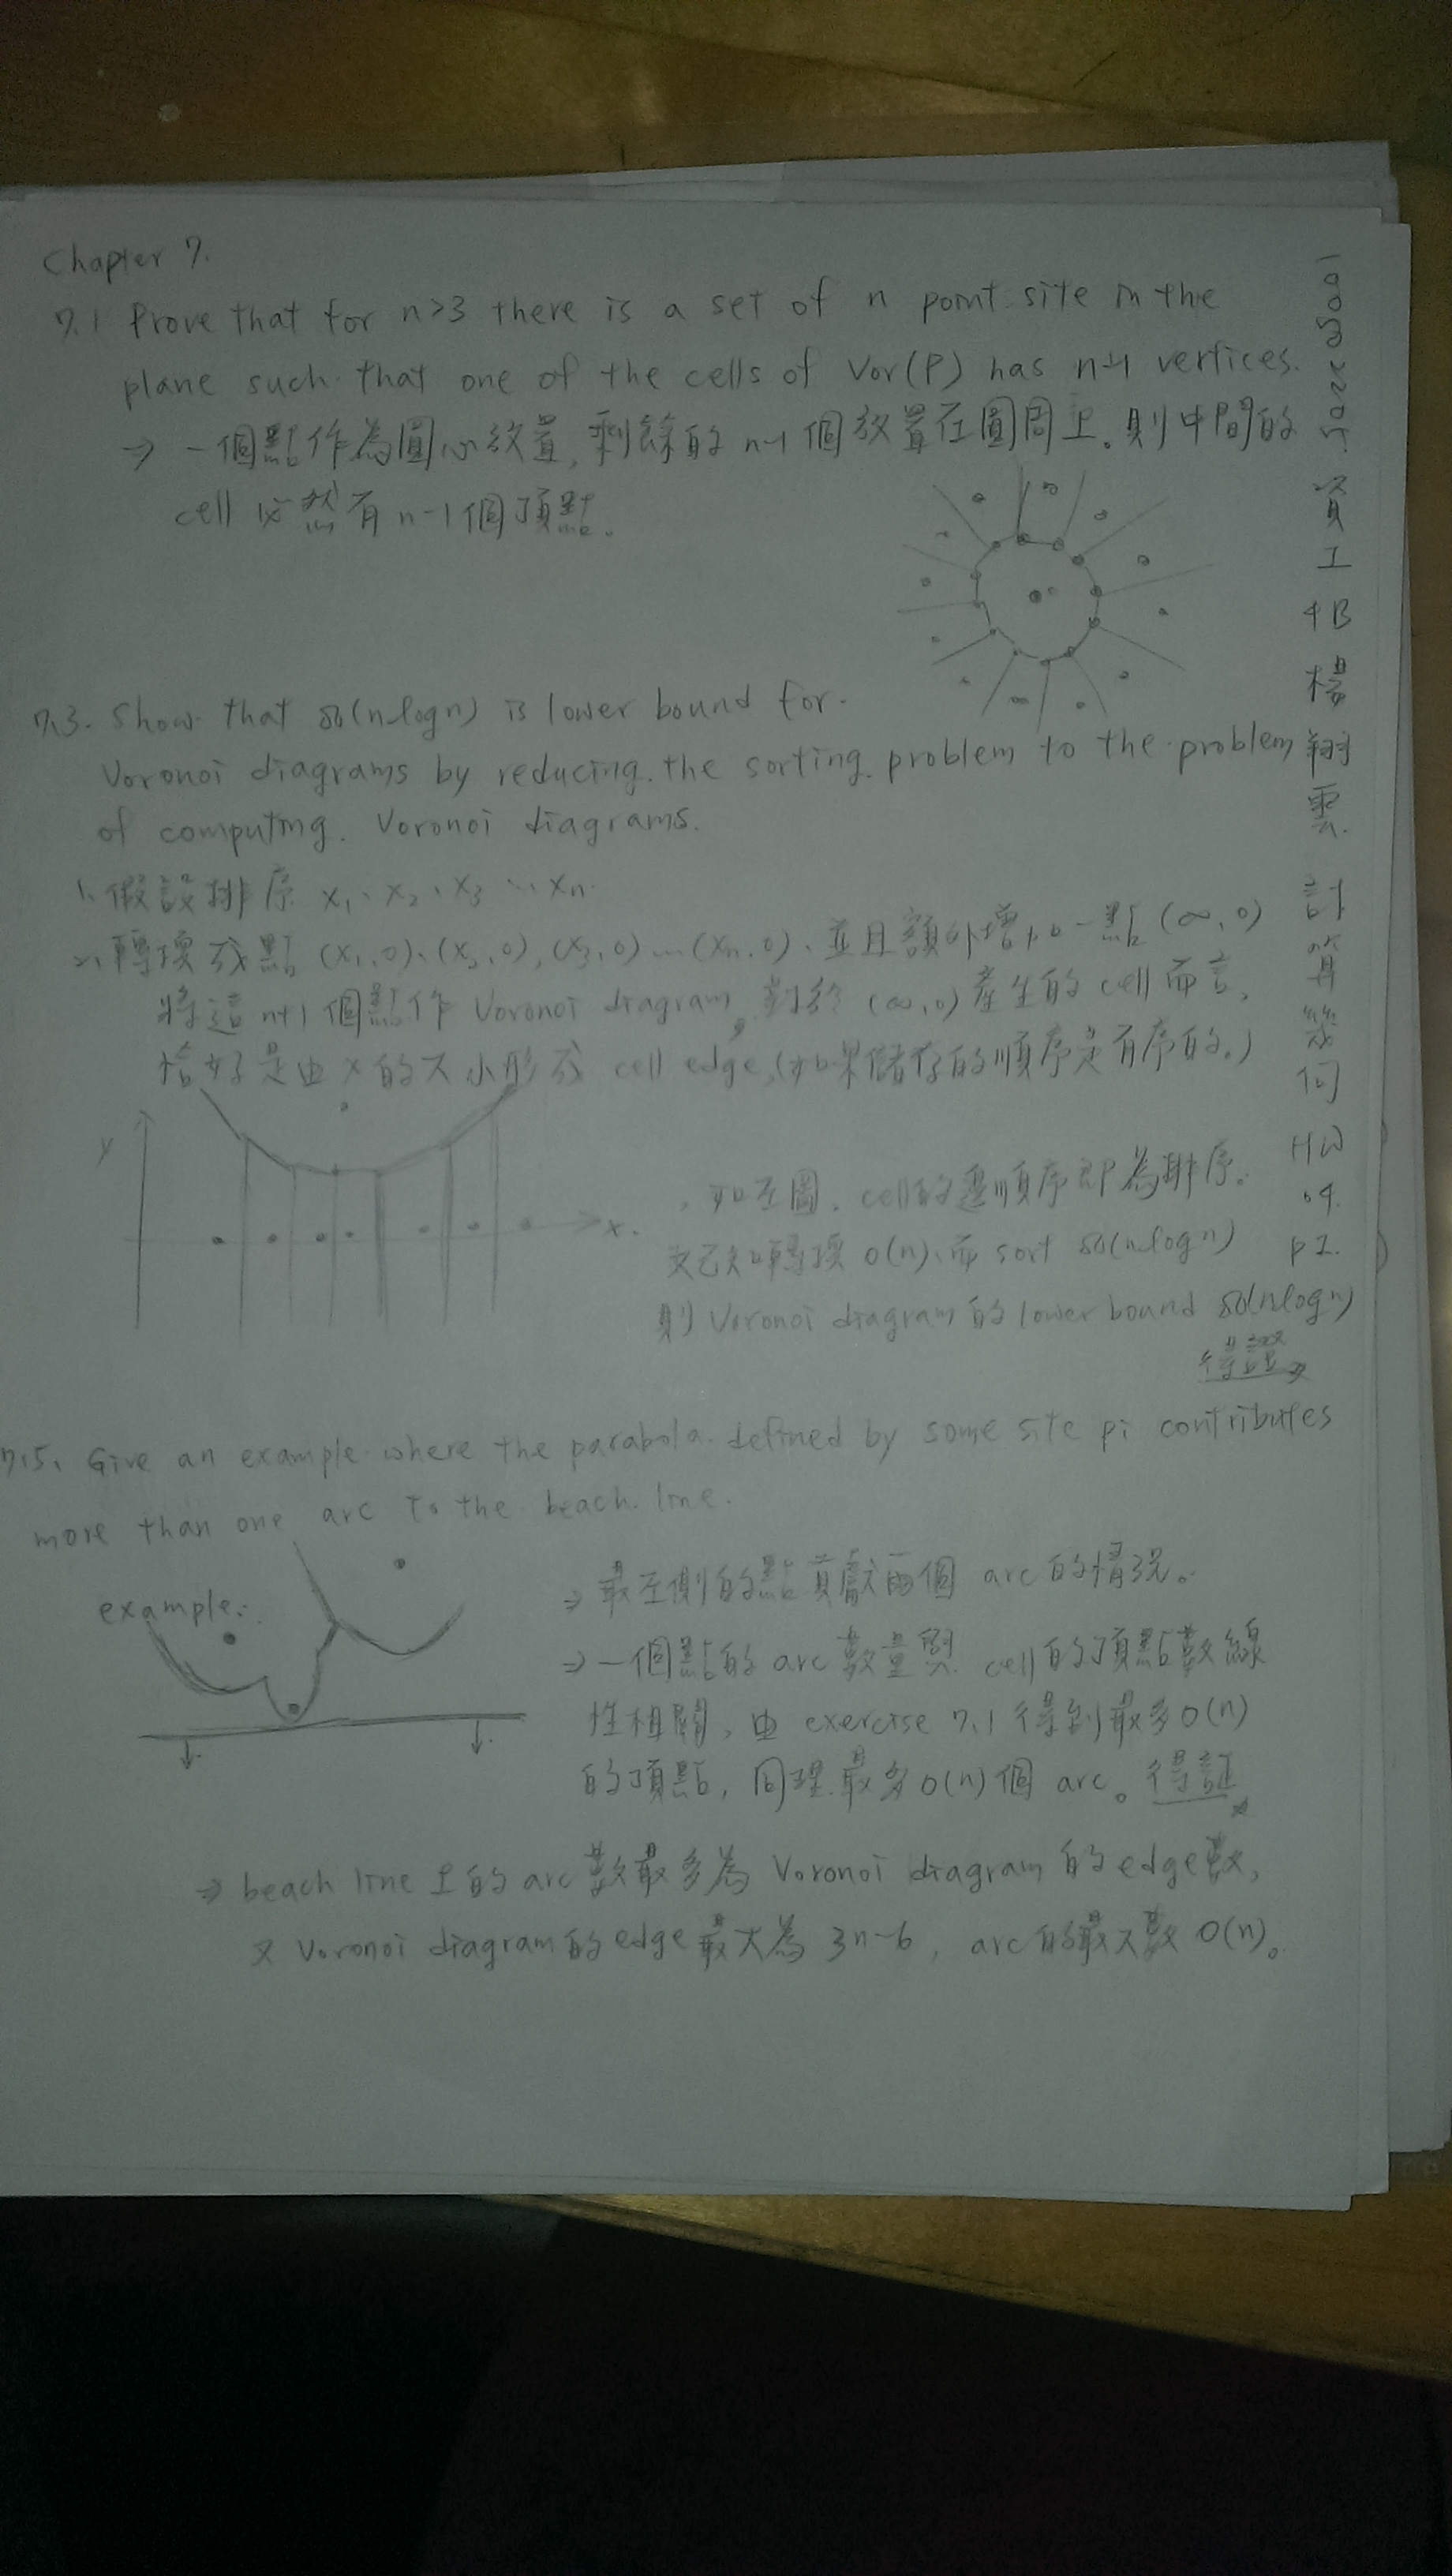 Chapter 7.
7.1 Prove that for n>3 there is a set of n point site in the
plane such that one of the cells of Vor(P) has n-1 vertices.
⇒ 一個點作為圓心放置, 剩餘的 n-1 個放置在圓周上。則中間的
cell 必然有 n-1 個頂點.
7.3. Show that Ω(n log n) is lower bound for.
Voronoi diagrams by reducing the sorting problem to the problem
of computing Voronoi diagrams.
1. 假設排序 x1、x2、x3 … xn.
2. 轉換成點 (x1,0)、(x2,0), (x3,0) … (xn,0)、並且額外增加一點 (∞,0)
將這 n+1 個點作 Voronoi diagram, 對於 (∞,0) 產生的 cell 而言、
恰好是由 x 的大小形成 cell edge, (如果儲存的順序是有序的。)
y
x.
如左圖、cell的邊順序即為排序。
又已知轉換 O(n)、而 sort Ω(n log n)
則 Voronoi diagram 的 lower bound Ω(n log n)
得證
7.5. Give an example where the parabola defined by some site pi contributes
more than one arc to the beach line.
example:
⇒ 最左側的點貢獻兩個 arc 的情況。
⇒ 一個點的 arc 數量與 cell的頂點數線
性相關、由 exercise 7.1 得到最多 O(n)
的頂點, 同理最多 O(n) 個 arc。得証
⇒ beach line 上的 arc 數最多為 Voronoi diagram 的 edge 數,
又 Voronoi diagram 的 edge 最大為 3n-6, arc 的最大數 O(n)。
資工4B 楊翔雲 計算幾何 HW 04. P1.